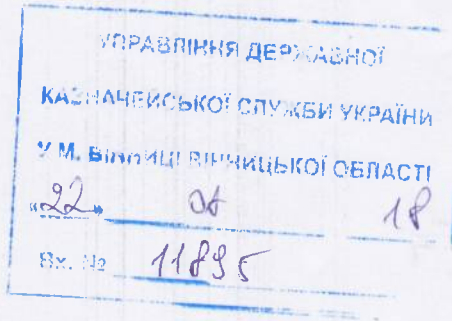 УПРАВЛІННЯ ДЕРЖАВНОЇ
КАЗНАЧЕЙСЬКОЇ СЛУЖБИ УКРАЇНИ
У М. ВІННИЦІ ВІННИЦЬКОЇ ОБЛАСТІ
«22» 18
Вх. № 11895